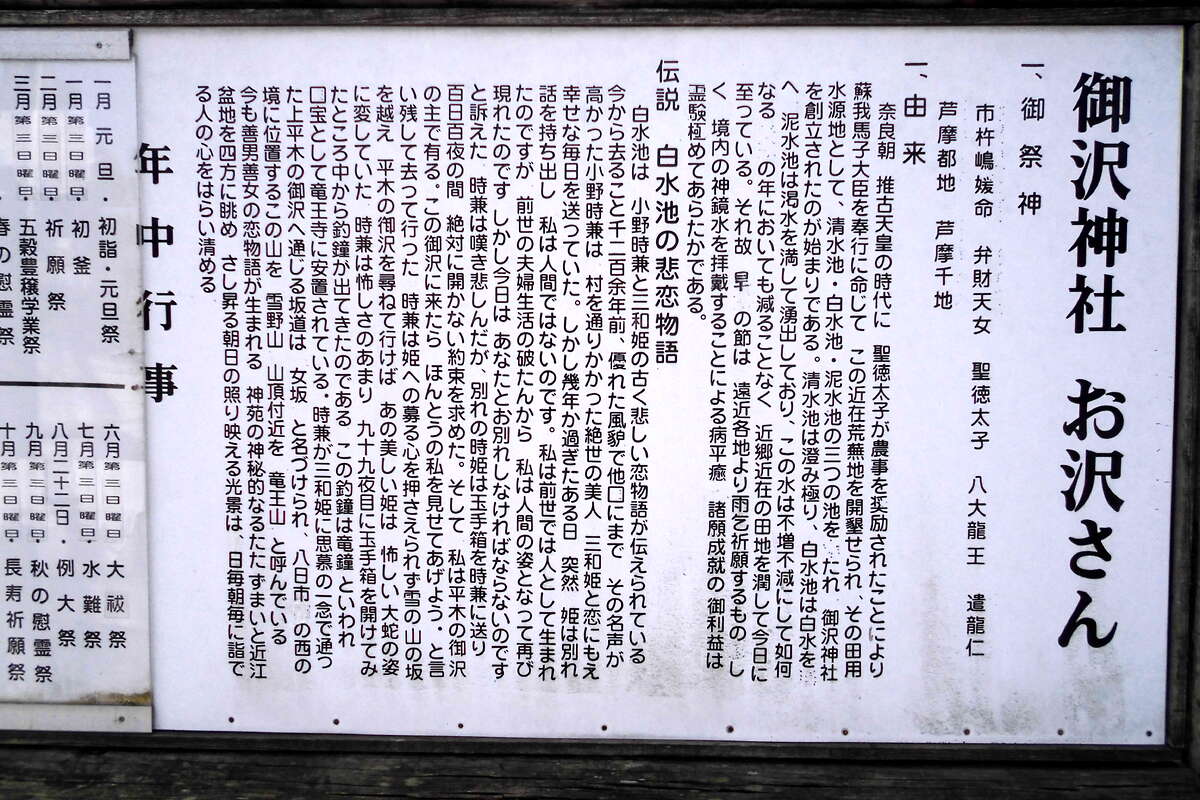 御沢神社 お沢さん
一、御祭神
市杵嶋媛命 弁財天女 聖徳太子 八大龍王 遣龍仁
芦摩都地 芦摩千地
一、由来
奈良朝 推古天皇の時代に 聖徳太子が農事を奨励されたことにより
蘇我馬子大臣を奉行に命じて この近在荒蕪地を開墾せられ、その田用
水源地として、清水池・白水池・泥水池の三つの池を たれ 御沢神社
を創立されたのが始まりである。清水池は澄み極り、白水池は白水を
へ 泥水池は渇水を満して湧出しており、この水は不増不減にして如何
なる の年においても減ることなく 近郷近在の田地を潤して今日に
至っている。それ故 旱 の節は 遠近各地より雨乞祈願するもの し
く 境内の神鏡水を拝戴することによる病平癒 諸願成就の御利益は
霊験極めてあらたかである。
伝説 白水池の悲恋物語
白水池は 小野時兼と三和姫の古く悲しい恋物語が伝えられている
今から去ること千二百余年前、優れた風貌で他□にまで その名声が
高かった小野時兼は 村を通りかかった絶世の美人 三和姫と恋にもえ
幸せな毎日を送っていた。しかし幾年か過ぎたある日 突然 姫は別れ
話を持ち出し 私は人間ではないのです。私は前世では人として生まれ
たのですが 前世の夫婦生活の破たんから 私は人間の姿となって再び
現れたのです しかし今日は あなたとお別れしなければならないのです
と訴えた 時兼は嘆き悲しんだが、別れの時姫は玉手箱を時兼に送り
百日百夜の間 絶対に開かない約束を求めた。そして 私は平木の御沢
の主で有る。この御沢に来たら ほんとうの私を見せてあげよう。と言
い残して去って行った 時兼は姫への募る心を押さえられず雪の山の坂
を越え 平木の御沢を尋ねて行けば あの美しい姫は 怖しい大蛇の姿
に変していた 時兼は怖しさのあまり 九十九夜目に玉手箱を開けてみ
たところ中から釣鐘が出てきたのである この釣鐘は竜鐘 といわれ
□宝として竜王寺に安置されている。時兼が三和姫に思慕の一念で通っ
た上平木の御沢へ通じる坂道は 女坂 と名づけられ、八日市 の西の
境に位置するこの山を 雪野山 山頂付近を 竜王山 と呼んでいる
今も善男善女の恋物語が生まれる 神苑の神秘的なるたたずまいと近江
盆地を四方に眺め さし昇る朝日の照り映える光景は、日毎朝毎に詣で
る人の心をはらい清める
年中行事
一月 元旦・初詣・元旦祭
一月第三日曜日・初釜
二月第三日曜日・祈願祭
三月第三日曜日・五穀豊穣学業祭
春の慰霊祭
六月第三日曜日・大祓祭
七月第三日曜日・水難祭
八月二十二日・例大祭
九月第三日曜日・秋の慰霊祭
十月第三日曜日・長寿祈願祭